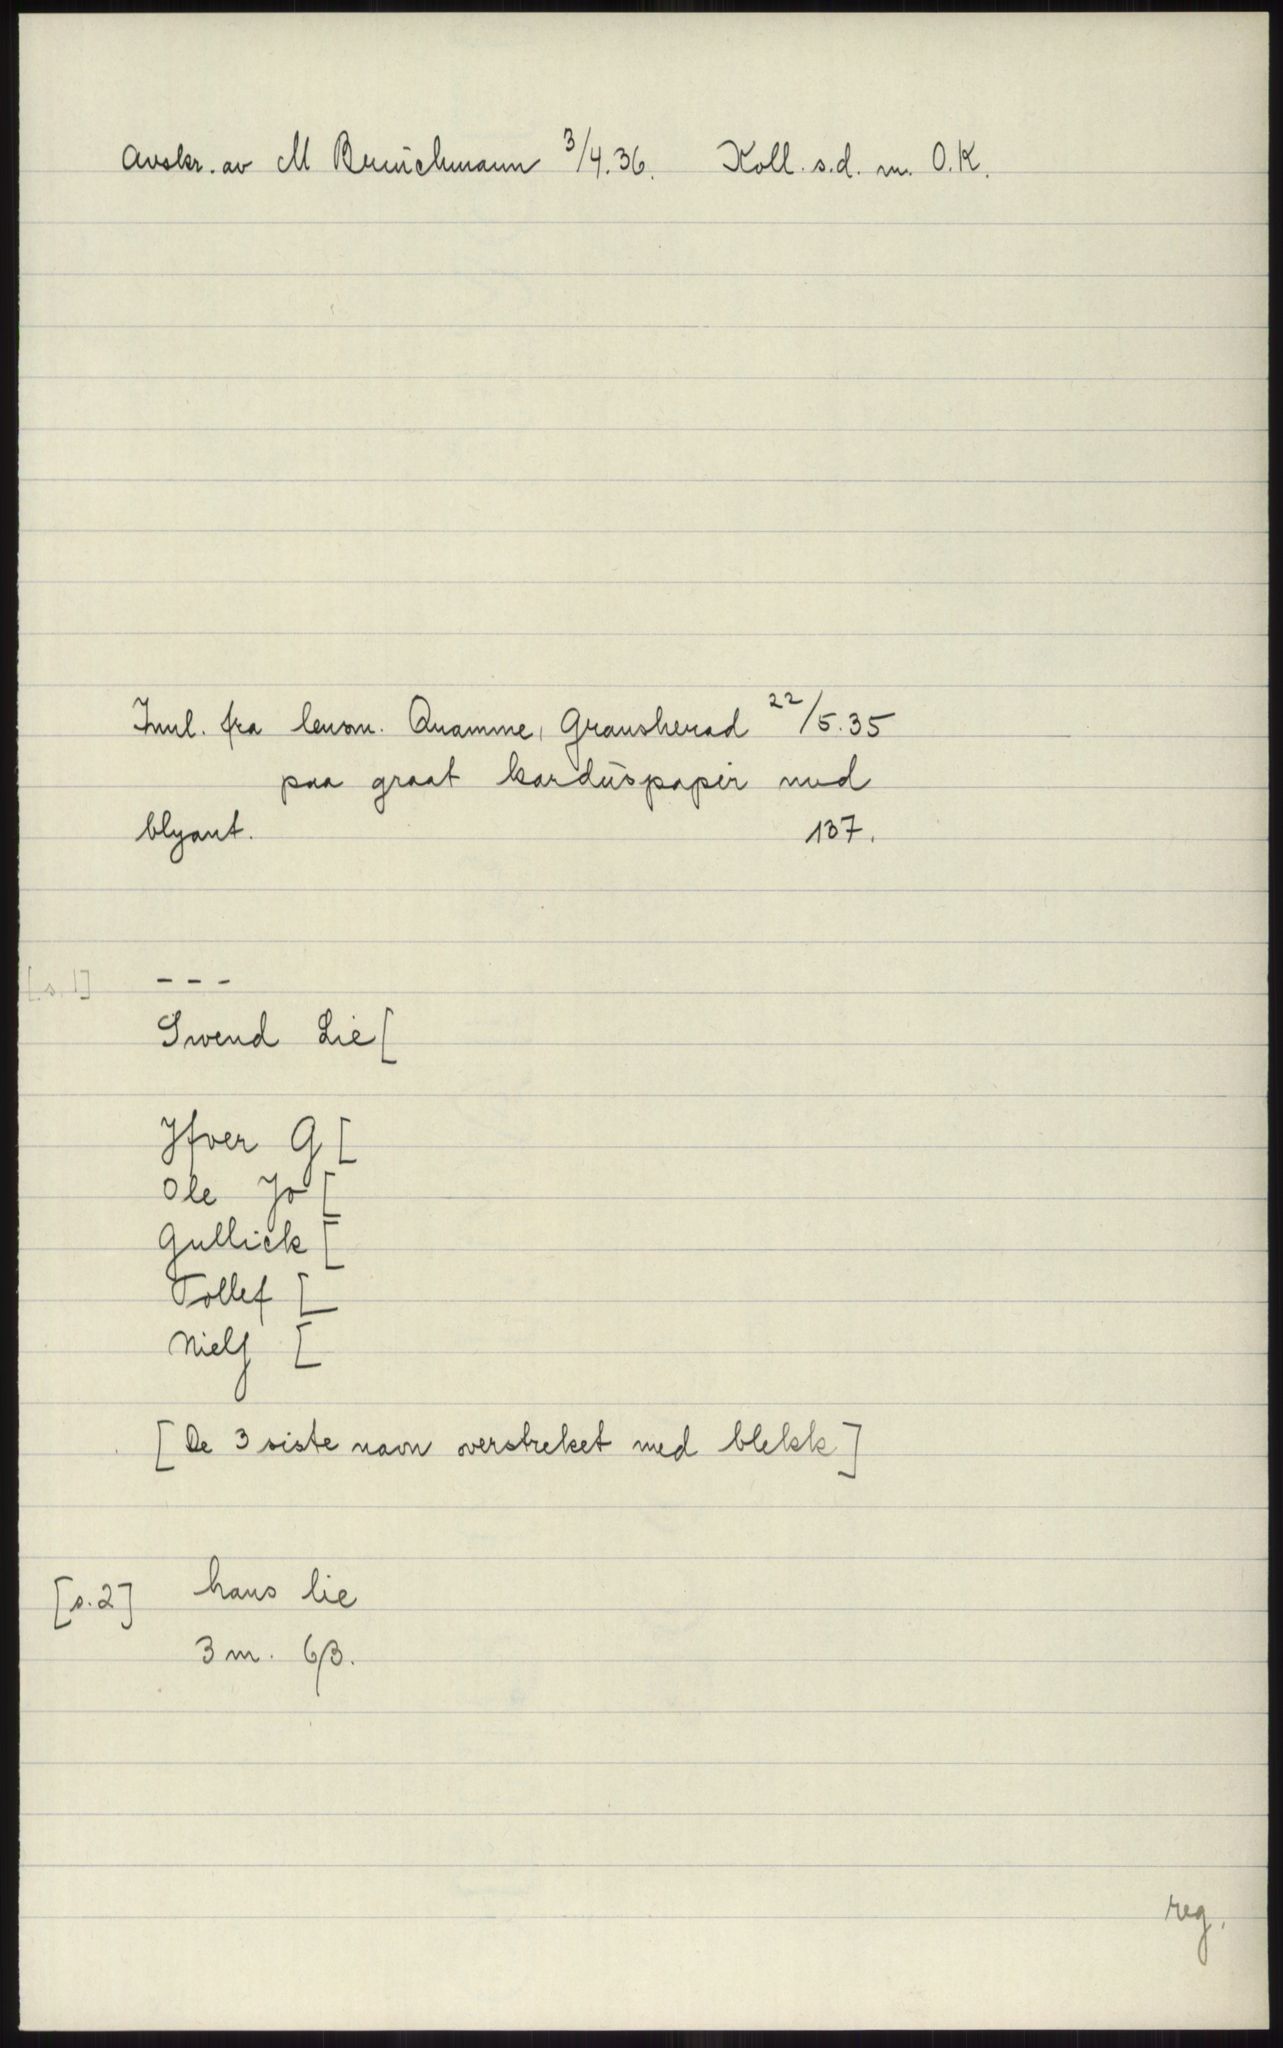 Avskr. av M Brinchmann 3/4.36. Koll. s.d. m. O.K.
Innl. fra lensm. Quamme, Gransherad 22/5.35
paa graat karduspapir med
blyant. 137.
[s. 1] - - -
Swend Lie [
Ifver G [
Ole Jo [
Gullick [
Tollef [
Nielſ [
[De 3 siste navn overstreket med blekk]
[s. 2] hans lie
3 m. 6 β.
reg.